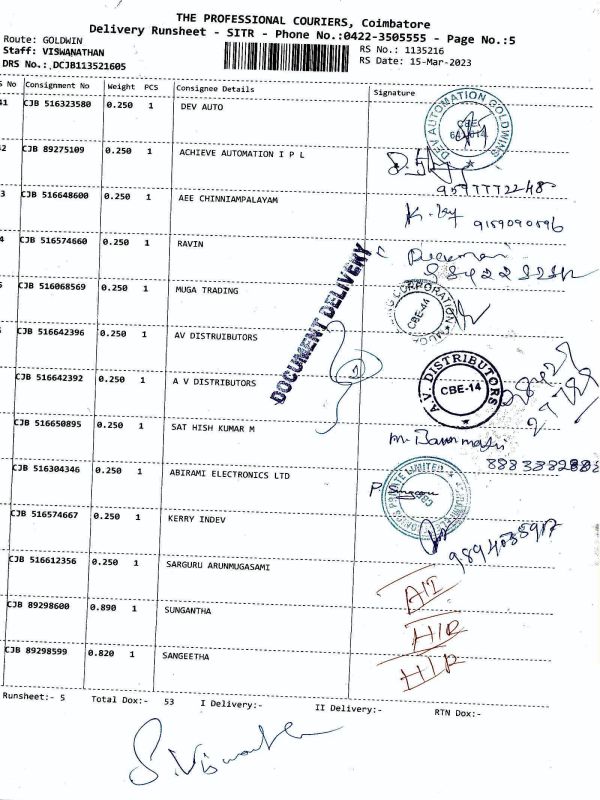 THE PROFESSIONAL COURIERS, Coimbatore
Delivery Runsheet - SITR - Phone No.:0422-3505555 - Page No.:5
Route: GOLDWIN
Staff: VISWANATHAN
DRS No.: DCJB113521605
RS No.: 1135216
RS Date: 15-Mar-2023
S No Consignment No Weight PCS Consignee Details Signature
41 CJB 516323580 0.250 1 DEV AUTO
DEV AUTOMATION GOLDWINS
42 CJB 89275109 0.250 1 ACHIEVE AUTOMATION I P L
9597772248
3 CJB 516648600 0.250 1 AEE CHINNIAMPALAYAM
9159090596
4 CJB 516574660 0.250 1 RAVIN
CJB 516068569 0.250 1 MUGA TRADING
CBE-14
CJB 516642396 0.250 1 AV DISTRUIBUTORS
DOCUMENT DELIVERY
CJB 516642392 0.250 1 A V DISTRIBUTORS
A.V. DISTRIBUTORS
CBE-14
CJB 516650895 0.250 1 SAT HISH KUMAR M
CJB 516304346 0.250 1 ABIRAMI ELECTRONICS LTD
CJB 516574667 0.250 1 KERRY INDEV
CJB 516612356 0.250 1 SARGURU ARUNMUGASAMI
CJB 89298600 0.890 1 SUNGANTHA
H/R
CJB 89298599 0.820 1 SANGEETHA
H/R
Runsheet:- 5 Total Dox:- 53 I Delivery:- II Delivery:- RTN Dox:-